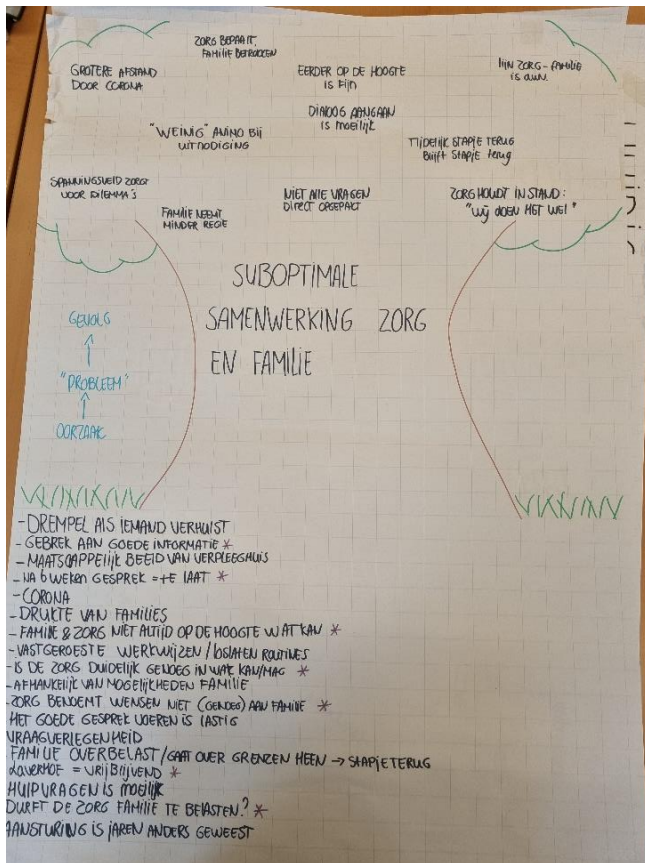 ZORG BEPAALT,
FAMILIE BETROKKEN
GROTERE AFSTAND
DOOR CORONA
EERDER OP DE HOOGTE
is FIJN
LIJN ZORG - FAMILIE
is dun.
DIALOOG AANGAAN
is moeilijk
"WEINIG" ANIMO BIJ
UITNODIGING
TIJDELIJK STAPJE TERUG
BLIJFT STAPJE TERUG
SPANNINGSVELD ZORGT
VOOR DILEMMA'S
NIET ALLE VRAGEN
DIRECT OPGEPAKT
ZORG HOUDT IN STAND:
"WIJ DOEN HET WEL"
FAMILIE NEEMT
MINDER REGIE
SUBOPTIMALE
SAMENWERKING ZORG
EN FAMILIE
GEVOLG
"PROBLEEM"
OORZAAK
- DREMPEL ALS IEMAND VERHUIST
- GEBREK AAN GOEDE INFORMATIE *
- MAATSCHAPPELIJK BEELD VAN VERPLEEGHUIS
- NA 6 WEKEN GESPREK = TE LAAT *
- CORONA
- DRUKTE VAN FAMILIES
- FAMILIE & ZORG NIET ALTIJD OP DE HOOGTE WAT KAN *
- VASTGEROESTE WERKWIJZEN / LOSLATEN ROUTINES
- IS DE ZORG DUIDELIJK GENOEG IN WAT KAN/MAG *
- AFHANKELIJK VAN MOGELIJKHEDEN FAMILIE
- ZORG BENOEMT WENSEN NIET (GENOEG) AAN FAMILIE *
HET GOEDE GESPREK VOEREN IS LASTIG
VRAAGVERLEGENHEID
FAMILIE OVERBELAST / GAAT OVER GRENZEN HEEN → STAPJE TERUG
LAVERHOF = VRIJBLIJVEND *
HULPVRAGEN IS MOEILIJK
DURFT DE ZORG FAMILIE TE BELASTEN? *
AANSTURING IS JAREN ANDERS GEWEEST